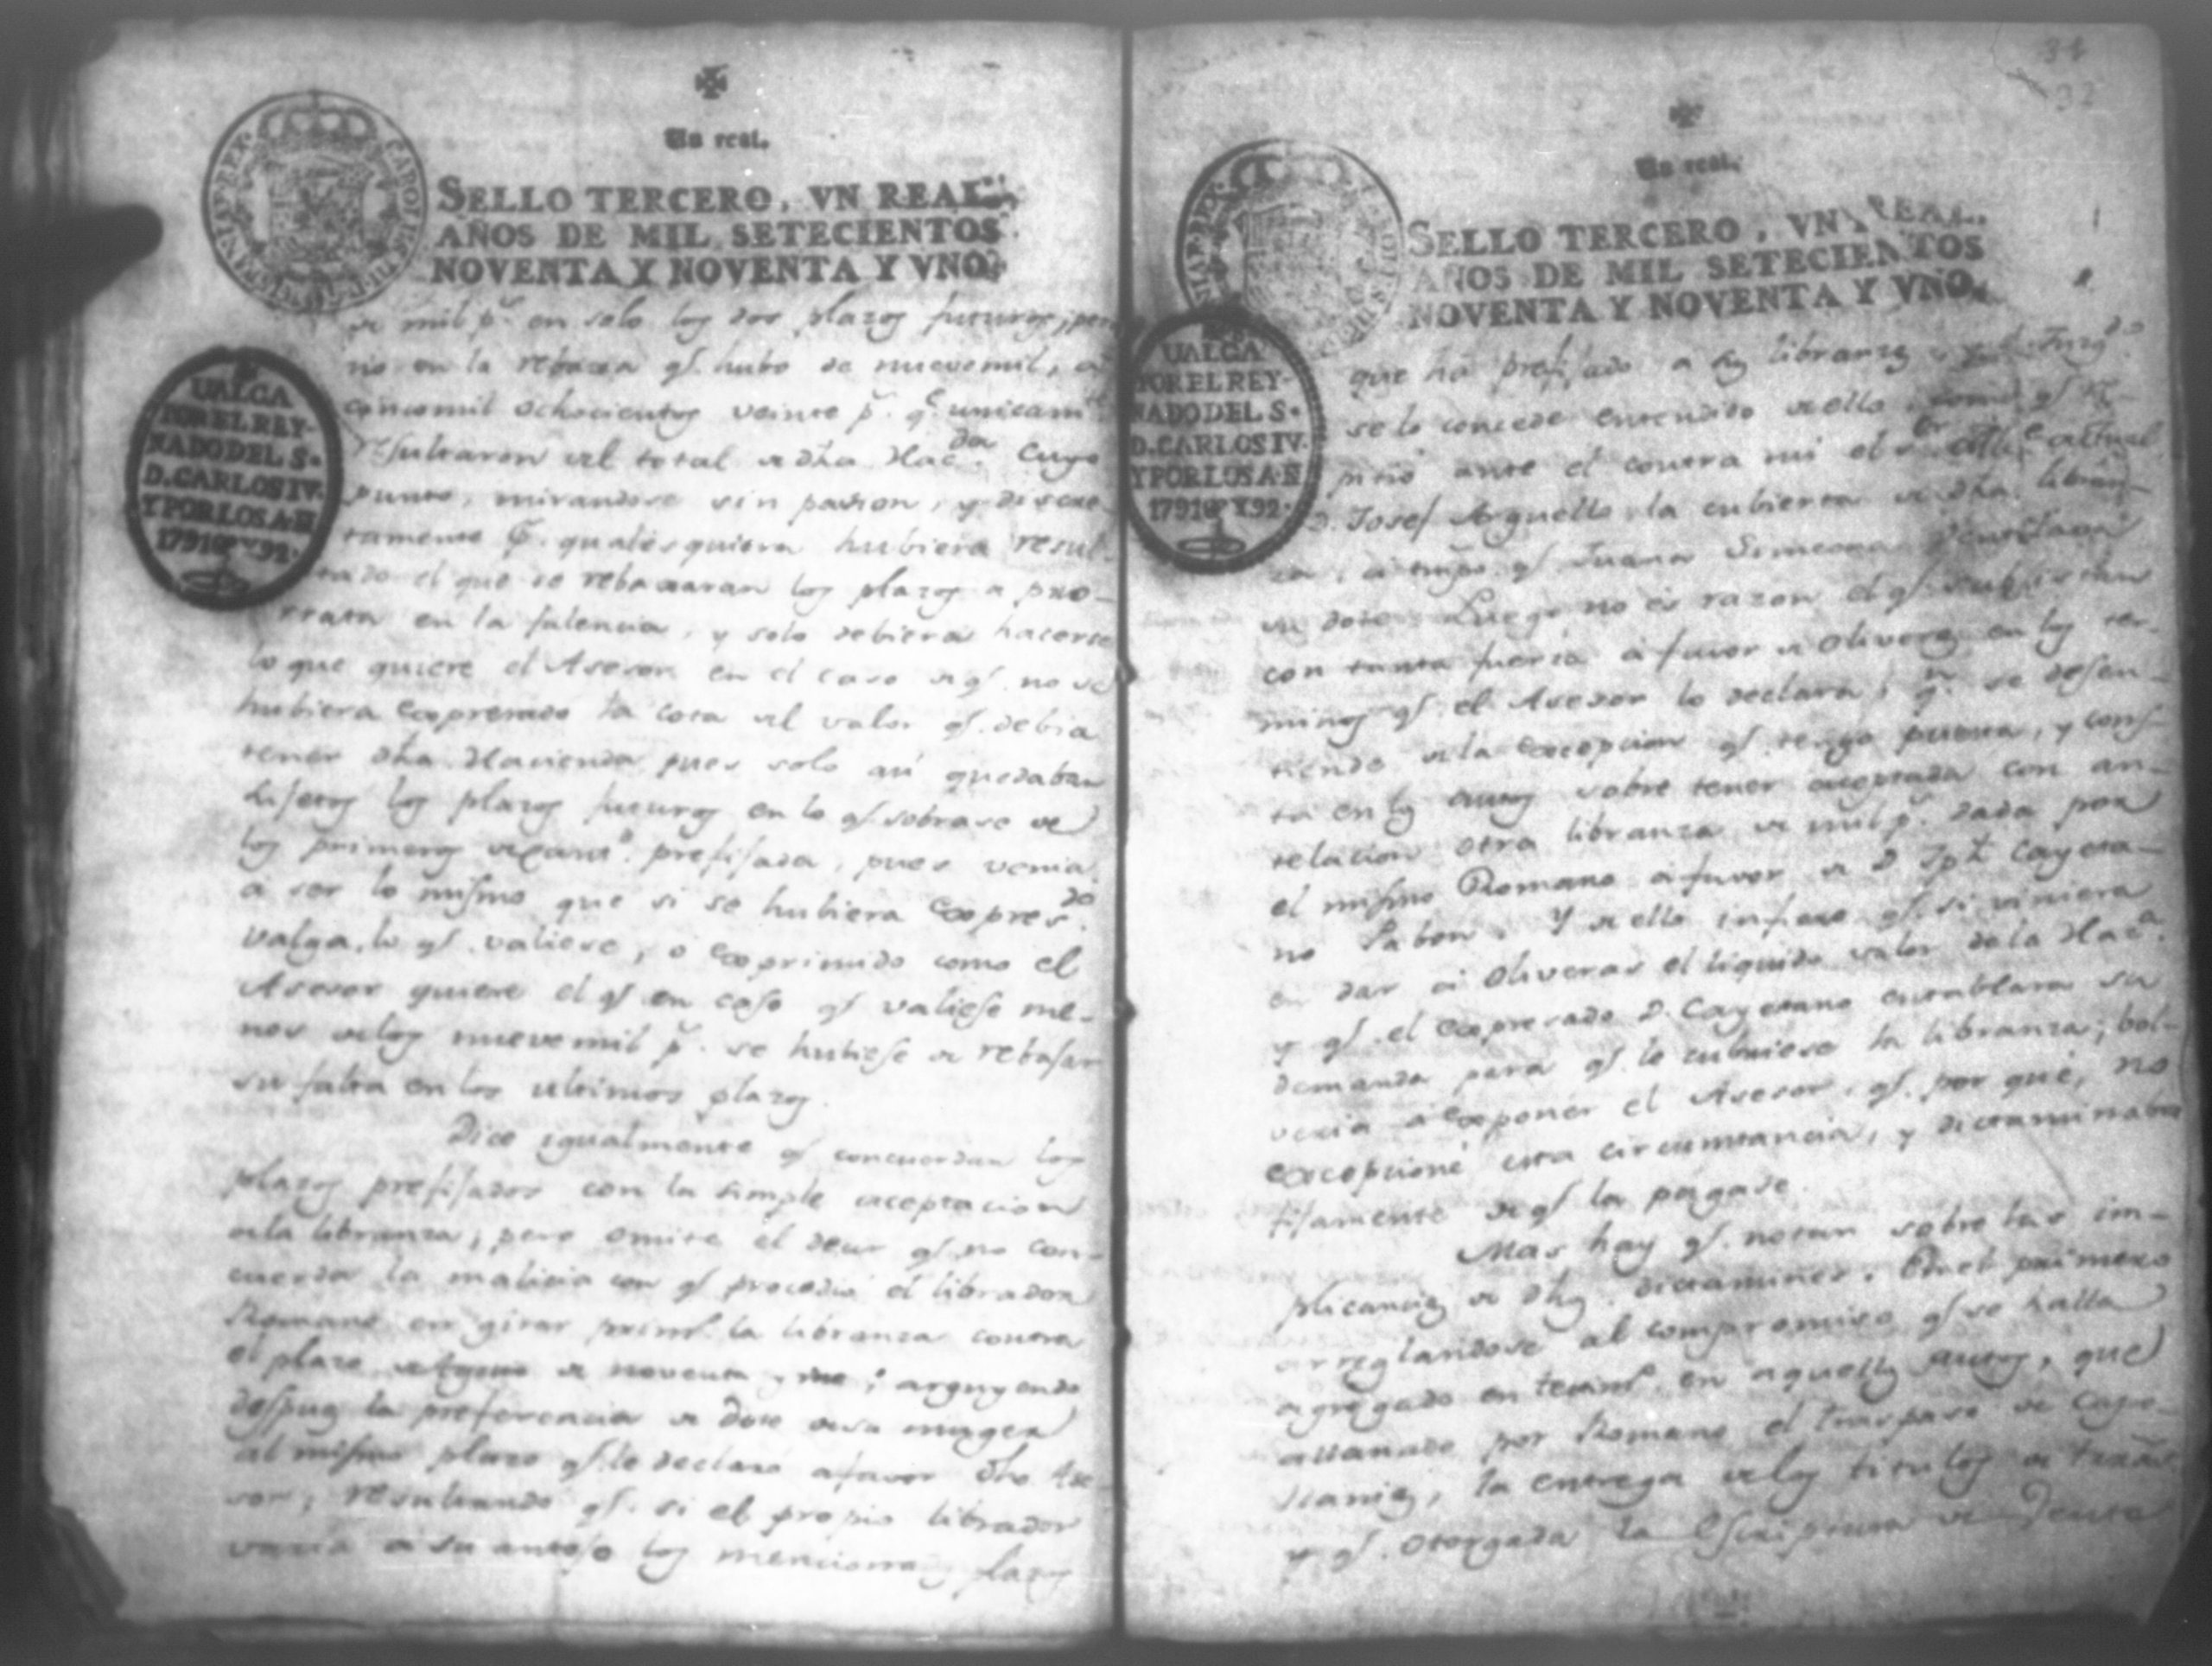 Un real.
SELLO TERCERO, VN REAL
AÑOS DE MIL SETECIENTOS
NOVENTA Y NOVENTA Y VNO.
VALGA
POR EL REY-
NADO DEL S.
D. CARLOS IV.
Y POR LOS A.S
1791 Y 92.
de mil p.s en solo los dos plazos futuros, pero
no en la rebaxa q.e hubo de nuevemil, a
cincomil ochocientos veinte p.s q.e unicam.te
resultaron del total de dha Hac.da Cuyo
punto, mirandose sin pasion, y discre-
tamente p.r qualesquiera hubiera resul-
tado el que se rebaxaran los plazos a pro-
rrata en la falencia, y solo debiera hacerse
lo que quiere el Asesor en el caso de q.e no se
hubiera expresado la cota del valor q.e debia
tener dha Hacienda pues solo asi quedaban
sujetos los plazos futuros en lo q.e sobrase de
los primeros prefijada, pues venia
a ser lo mismo que si se hubiera expres.do
valga lo q.e valiese, o exprimido como el
Asesor quiere el q.e en caso q.e valiese me-
nos de los nuevemil p.s se hubiese de rebajar
su falta en los ultimos plazos.
Dice igualmente q.e concuerdan los
plazos prefijados con la simple aceptacion
de la libranza; pero omite el decir q.e no con-
cuerda la malicia con q.e procedió el librador
Romano en girar prim.o la libranza contra
el plazo de noventa y arguyendo
despues la preferencia de dote de su muger
al mismo plazo q.e le declara a favor dho Ase-
sor; resultando q.e si el propio librador
varia a su antojo los mencionados plazos
34
32
Un real.
SELLO TERCERO, VN REAL.
AÑOS DE MIL SETECIENTOS
NOVENTA Y NOVENTA Y VNO.
VALGA
POR EL REY-
NADO DEL S.
D. CARLOS IV.
Y POR LOS A.S
1791 Y 92.
que ha prefijado a sus libranzas y el Juzg.do
se lo concede entendido de ello, como q.e
pitió ante el contra mi el actual
D. Josef Arguello la cubierta de dha libran-
za, a tmpo q.e Juana Simeona
su dote. Luego no es razon el q.e subsistan
con tanta fuerza a favor de Oliveros en los ter-
minos q.e el Asesor lo declara; q.n se desen-
tiende de la excepcion q.e tengo puesta, y cons-
ta en los autos sobre tener aceptada con an-
telacion otra libranza de mil p.s dada por
el mismo Romano a favor de D. Jph Cayeta-
no Pabon. Y de ello infiero q.e si viniera
en dar a Oliveras el liquido valor de la Hac.a
y q.e el expresado D. Cayetano entablara su
demanda para q.e le cubriese la libranza; bol-
veria a exponer el Asesor q.e por qué no
excepcioné esta circunstancia, y dictaminaba
fijamente de q.e la pagase.
Mas hay q.e notar sobre las im-
plicancias de dhos dictamines. En el primero
arreglandose al compromiso q.e se halla
agregado en testim.o en aquellos autos, que
allanado por Romano el traspaso de Cape-
llanias, la entrega de los titulos de
y q.e otorgada la Escriptura de Venta